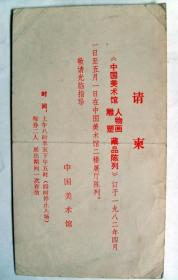 请柬
《中国美术馆 人物画 雕塑 藏品陈列》订于一九八二年四月
一日至五月一日在中国美术馆二楼展厅陈列。
敬请光临指导
中国美术馆
时间：上午八时半至下午五时（四时停止入场）
每券二人 展出期间一次有效